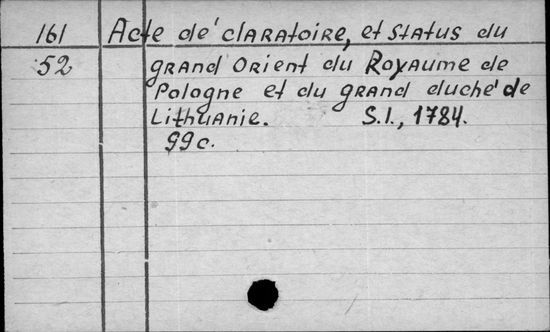 161 Acte de'claratoire, et status du
52 grand Orient du Royaume de
Pologne et du grand duché de
Lithuanie. S.l., 1784.
99c.